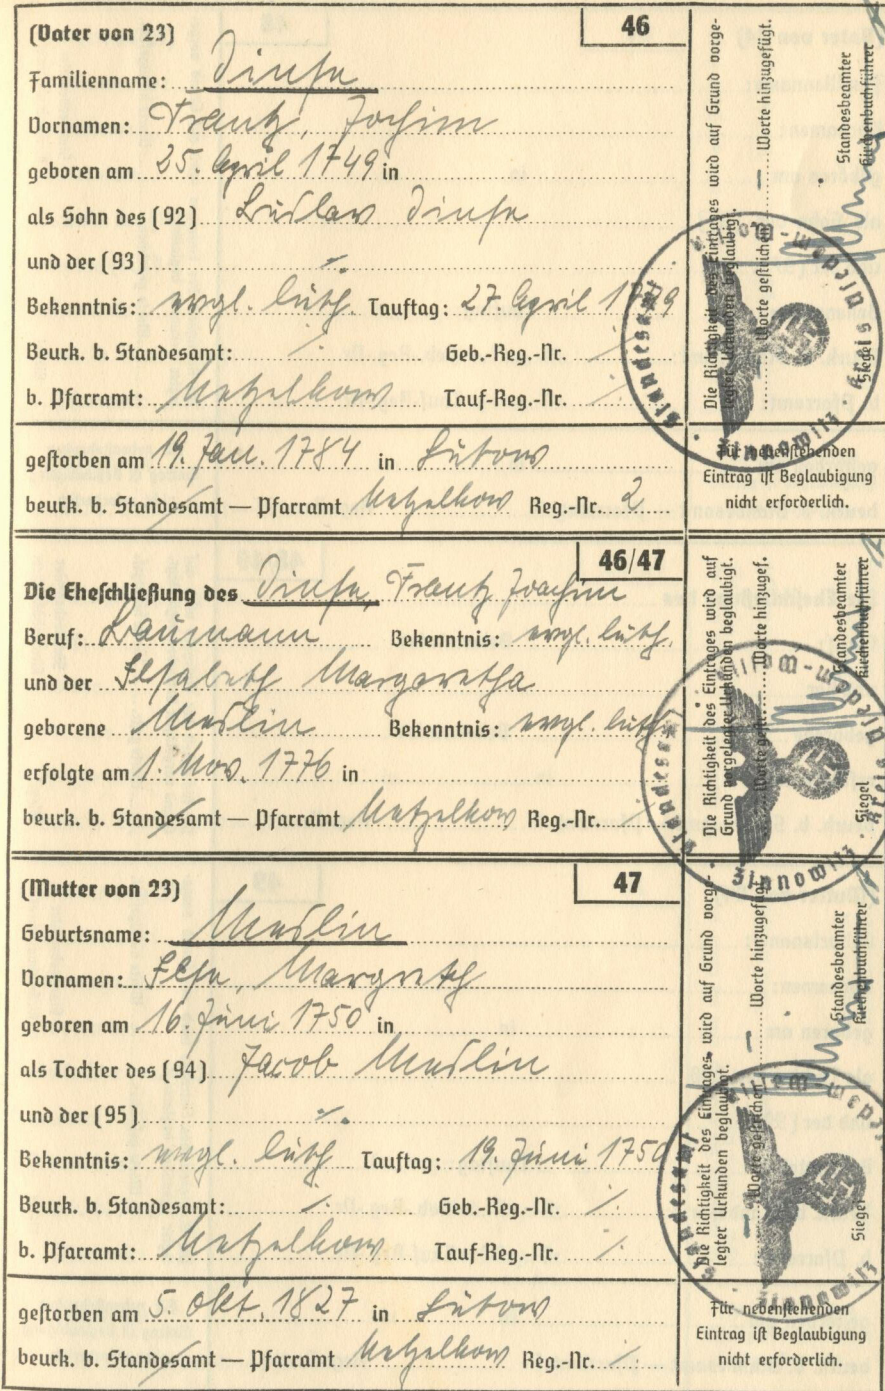 (Vater von 23) 46
Familienname: Dinse
Vornamen: Frantz, Jochim
geboren am 25. April 1749 in
als Sohn des (92) Dinse
und der (93)
Bekenntnis: evgl. luth. Tauftag: 27. April 1749
Beurk. b. Standesamt: / Geb.-Reg.-Nr. /
b. Pfarramt: Metzelkow Tauf-Reg.-Nr. /
gestorben am 19. Jan. 1784 in Lütow
beurk. b. Standesamt — Pfarramt Metzelkow Reg.-Nr. 2
Die Richtigkeit des Eintrages wird auf Grund vorge-
legter Urkunden beglaubigt.
— Worte gestrichen — Worte hinzugefügt.
Standesbeamter
Kirchenbuchführer
Siegel
Standesamt Zinnowitz Kreis Usedom-Wollin
Für nebenstehenden
Eintrag ist Beglaubigung
nicht erforderlich.
46/47
Die Eheschließung des Dinse, Frantz Joachim
Beruf: Baumann Bekenntnis: evgl. luth.
und der Elsabeth Margaretha
geborene Meslin Bekenntnis: evgl. luth.
erfolgte am 1. Nov. 1776 in
beurk. b. Standesamt — Pfarramt Metzelkow Reg.-Nr. /
Die Richtigkeit des Eintrages wird auf
Grund vorgelegter Urkunden beglaubigt.
Worte gestr. Worte hinzugef.
Standesbeamter
Kirchenbuchführer
Siegel
Standesamt Zinnowitz Kreis Usedom-Wollin
(Mutter von 23) 47
Geburtsname: Meslin
Vornamen: Else, Margreth
geboren am 16. Juni 1750 in
als Tochter des (94) Jacob Meslin
und der (95)
Bekenntnis: evgl. luth Tauftag: 19. Juni 1750
Beurk. b. Standesamt: / Geb.-Reg.-Nr. /
b. Pfarramt: Metzelkow Tauf-Reg.-Nr. /
gestorben am 5. Okt. 1827 in Lütow
beurk. b. Standesamt — Pfarramt Metzelkow Reg.-Nr. /
Die Richtigkeit des Eintrages wird auf Grund vorge-
legter Urkunden beglaubigt.
— Worte gestrichen — Worte hinzugefügt.
Standesbeamter
Kirchenbuchführer
Siegel
Standesamt Zinnowitz Usedom-Wollin
Für nebenstehenden
Eintrag ist Beglaubigung
nicht erforderlich.